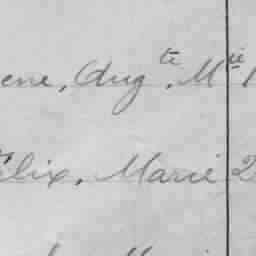 ene, Aug.te, Mie
élix, Marie 2